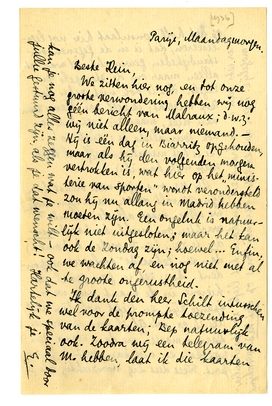 [1936]
Parijs, Maandagmorgen.
Beste Hein,
We zitten hier nog, en tot onze
groote verwondering hebben wij nog
geen bericht van Malraux; d.w.z.
wij niet alleen, maar niemand. –
Hij is één dag in Biarritz opgehouden,
maar als hij den volgenden morgen
vertrokken is, wat hier op het „minis-
terie van sporten" wordt verondersteld
zou hij nu allang in Madrid hebben
moeten zijn. Een ongeluk is natuur-
lijk niet uitgesloten; maar het kan
ook de Zondag zijn; hoewel... Enfin,
we wachten af, en nog niet met al
te groote ongerustheid.
Ik dank den heer Schilt intusschen
wel voor de prompte toezending
van de kaarten; Bep natuurlijk
ook. Zoodra wij een telegram van
M. hebben, laat ik die kaarten
kan je nog alles zeggen wat je wilt – ook dat we speciaal door
jullie gestuurd zijn, als je dat wenscht! Hartelijk je E.